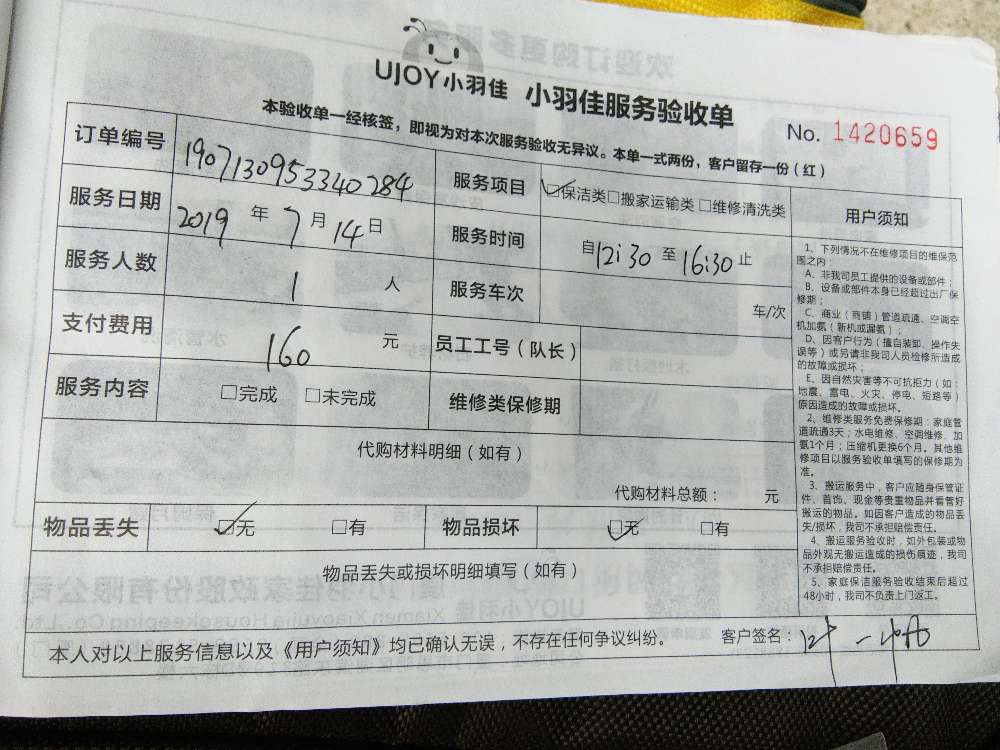 UJOY小羽佳 小羽佳服务验收单
本验收单一经核签，即视为对本次服务验收无异议。本单一式两份，客户留存一份（红）
No. 1420659
订单编号 1907130953340284 服务项目 ☑保洁类□搬家运输类 □维修清洗类
服务日期 2019 年 7 月 14 日 服务时间 自 12:30 至 16:30 止
服务人数 1 人 服务车次 车/次
支付费用 160 元 员工工号（队长）
服务内容 □完成 □未完成 维修类保修期
代购材料明细（如有）
代购材料总额： 元
物品丢失 ☑无 □有 物品损坏 ☑无 □有
物品丢失或损坏明细填写（如有）
本人对以上服务信息以及《用户须知》均已确认无误，不存在任何争议纠纷。 客户签名：
用户须知
1、下列情况不在维修项目的维保范
围之内：
A、非我司员工提供的设备或部件；
B、设备或部件本身已经超过出厂保
修期；
C、商业（商铺）管道疏通、空调空
机加氨（新机或漏氨）；
D、因客户行为（擅自装卸、操作失
误等）或另请非我司人员检修所造成
的故障或损坏；
E、因自然灾害等不可抗拒力（如：
地震、雷电、火灾、停电、短路等）
原因造成的故障或损坏。
2、维修类服务免费保修期：家庭管
道疏通3天；水电维修、空调维修、加
氨1个月；压缩机更换6个月。其他维
修项目以服务验收单填写的保修期为
准。
3、搬运服务中，客户应随身保管证
件、首饰、现金等贵重物品并看管好
搬运的物品。如因客户造成的物品丢
失/损坏，我司不承担赔偿责任。
4、搬运服务验收时，如外包装或物
品外观无搬运造成的损伤痕迹，我司
不承担赔偿责任。
5、家庭保洁服务验收结束后超过
48小时，我司不负责上门返工。